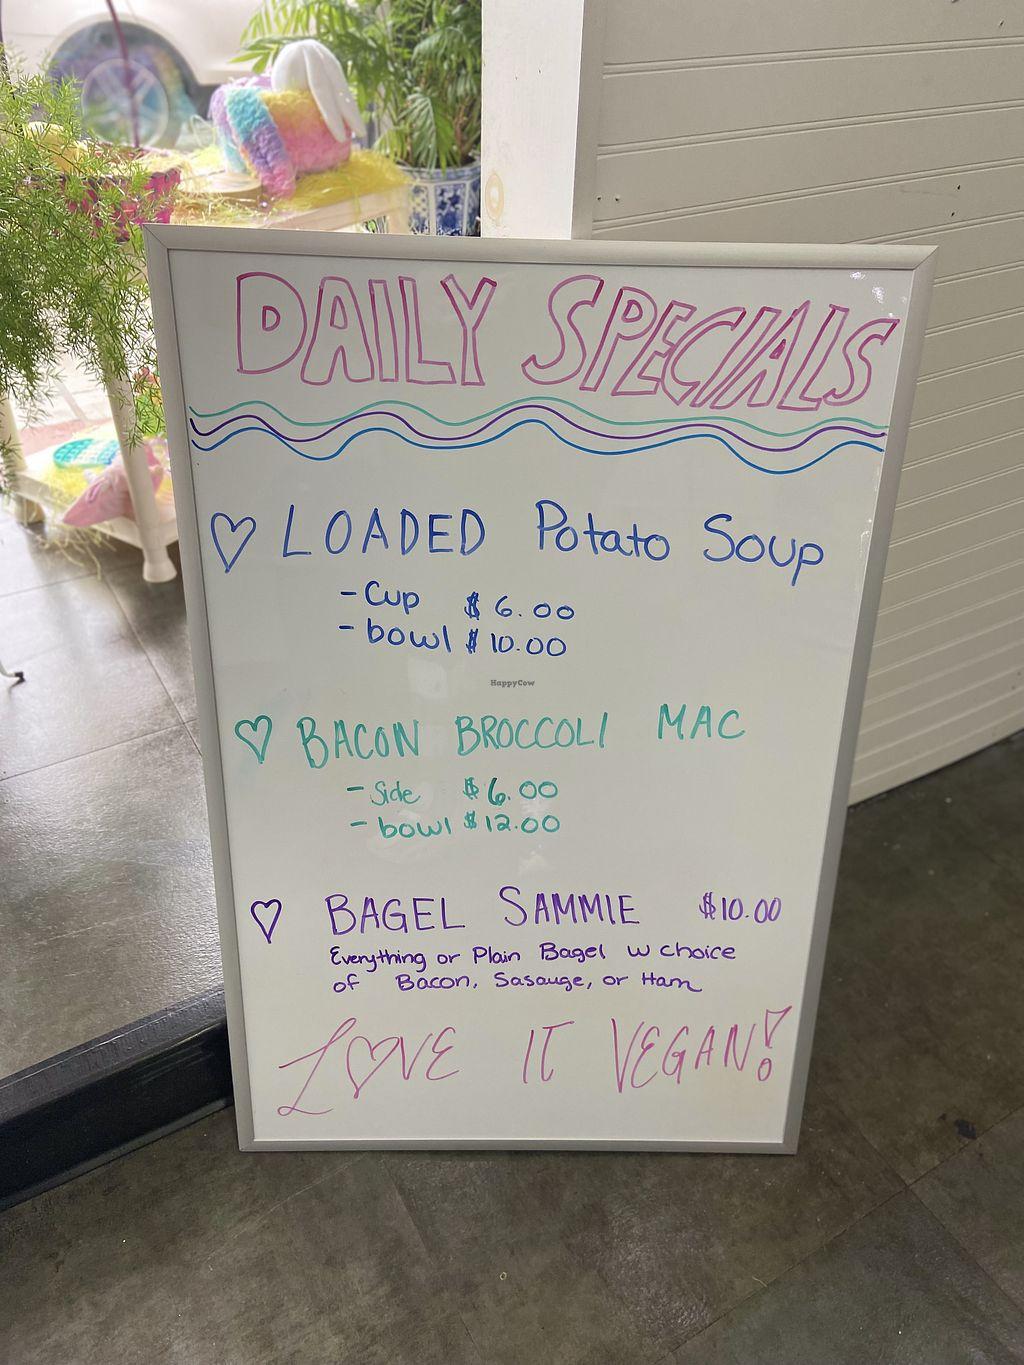 DAILY SPECIALS
LOADED Potato Soup
- Cup $6.00
- bowl $10.00
HappyCow
BACON BROCCOLI MAC
- Side $6.00
- bowl $12.00
BAGEL SAMMIE $10.00
Everything or Plain Bagel w choice
of Bacon, Sasauge, or Ham
LOVE IT VEGAN!